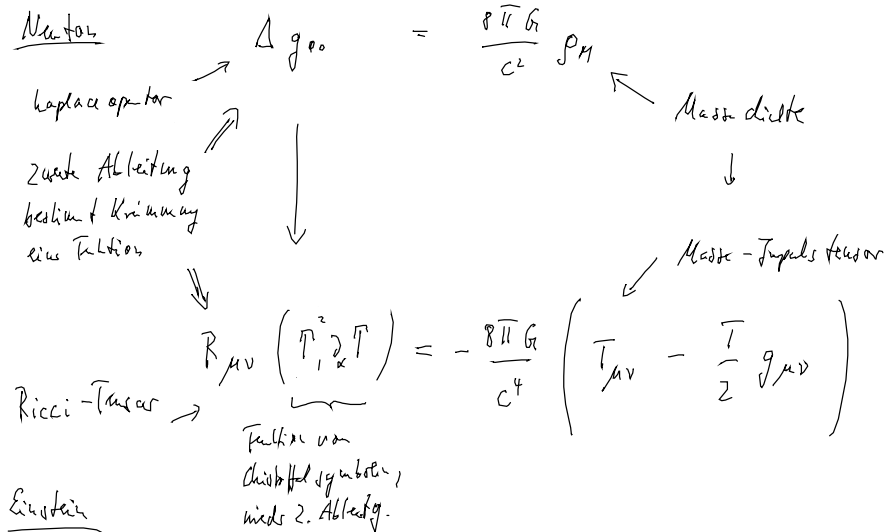 Newton
Δ g₀₀ = 8πG/c² ρ_M
Laplaceoperator
Massedichte
Zweite Ableitung
bestimmt Krümmung
eine Funktion
Masse-Impulstensor
R_μν (Γ², ∂_α Γ) = - 8πG/c⁴ (T_μν - T/2 g_μν)
Ricci-Tensor
Funktion von
Christoffelsymbolen,
2. Ableitg.
Einstein